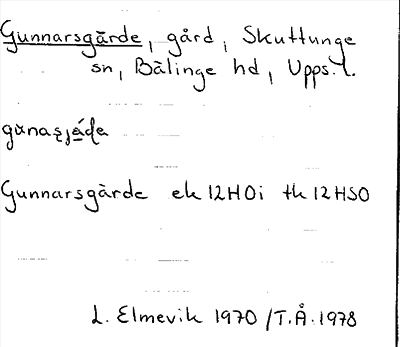 Gunnarsgärde, gård, Skuttunge
sn, Bälinge hd, Upps. l.
Gunnarsgärde ek 12H0i tk 12HSO
L. Elmevik 1970 / T.Å. 1978